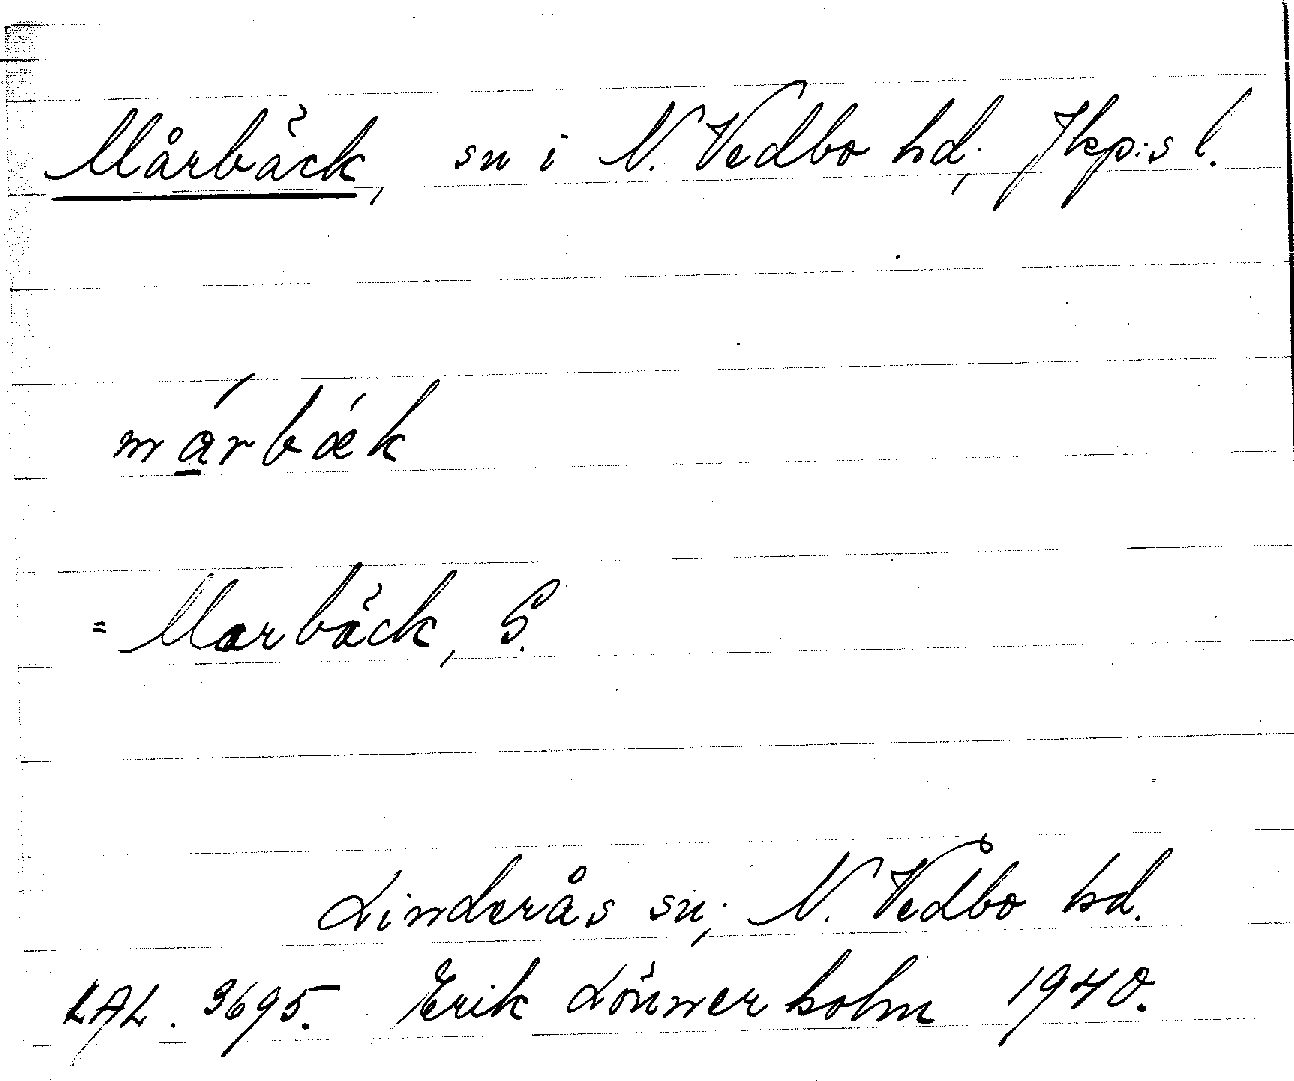 Mårbäck, sn i N. Vedbo hd; Jkp:s l.
márbǽk
= Marbäck, S.
Linderås sn; N. Vedbo hd.
LAL. 3695. Erik Lönnerholm 1940.